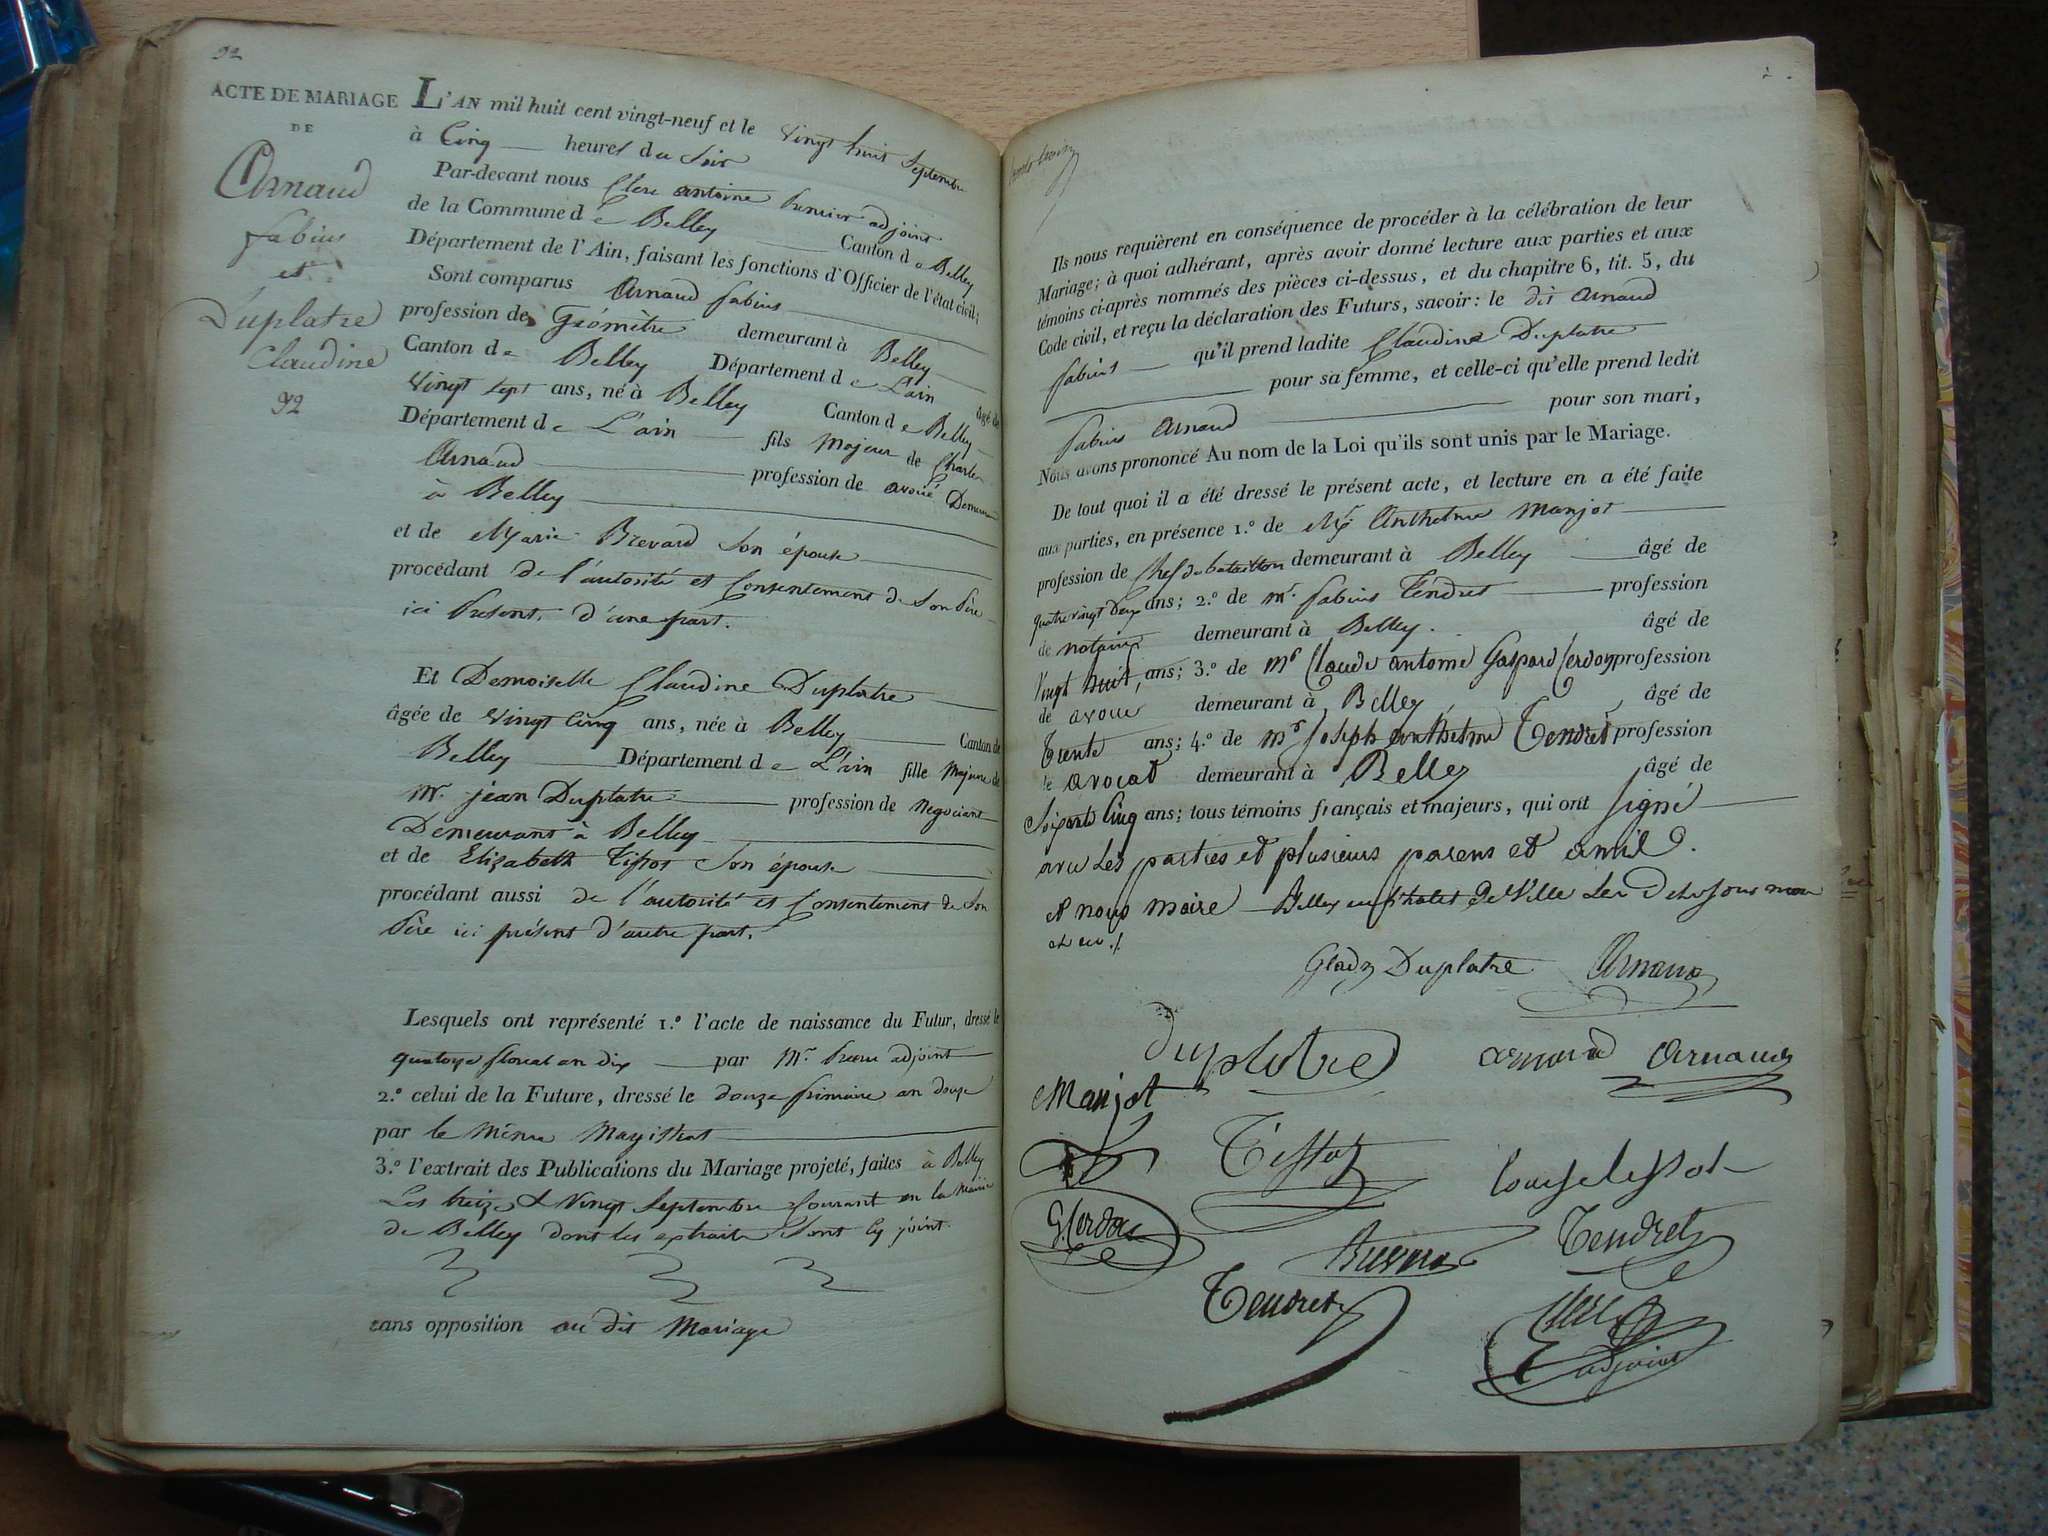 92
ACTE DE MARIAGE
DE
Arnaud
fabius
et
Duplatre
Claudine
92
L'AN mil huit cent vingt-neuf et le vingt huit Septembre
à Cinq heures du Soir
Par-devant nous Clerc antoine premier adjoint
de la Commune de Belley Canton de Belley
Département de l'Ain, faisant les fonctions d'Officier de l'état civil;
Sont comparus Arnaud fabius
profession de Géomètre demeurant à Belley
Canton de Belley Département de L'ain âgé de
vingt sept ans, né à Belley Canton de Belley
Département de L'ain fils Majeur de Charles
Arnaud profession de avoué Demeurant
à Belley
et de Marie Brevard Son épouse
procédant de l'autorité et Consentement de Son Père
ici Présent, d'une part.
Et Demoiselle Claudine Duplatre
âgée de vingt Cinq ans, née à Belley Canton de
Belley Département de L'ain fille Majeure de
Mr. jean Duplatre profession de Negociant
Demeurant à Belley
et de Elizabeth Tissot Son épouse
procédant aussi de l'autorité et Consentement de Son
Père ici présent d'autre part.
Lesquels ont représenté 1.º l'acte de naissance du Futur, dressé le
quatorze floreal an dix par Mr adjoint
2.º celui de la Future, dressé le douze frimaire an douze
par le Même Magistrat
3.º l'extrait des Publications du Mariage projeté, faites à Belley
Les treize & Vingt Septembre Courant en la Mairie
de Belley dont les extraits Sont Cy joint.
sans opposition au dit Mariage
Ils nous requièrent en conséquence de procéder à la célébration de leur
Mariage; à quoi adhérant, après avoir donné lecture aux parties et aux
témoins ci-après nommés des pièces ci-dessus, et du chapitre 6, tit. 5, du
Code civil, et reçu la déclaration des Futurs, savoir: le dit Arnaud
fabius qu'il prend ladite Claudine Duplatre
pour sa femme, et celle-ci qu'elle prend ledit
fabius Arnaud pour son mari,
Nous avons prononcé Au nom de la Loi qu'ils sont unis par le Mariage.
De tout quoi il a été dressé le présent acte, et lecture en a été faite
aux parties, en présence 1.º de Mr Anthelme Manjot
profession de Chef de bataillon demeurant à Belley âgé de
quatre vingt Deux ans; 2.º de Mr. fabius Tendret profession
de notaire demeurant à Belley. âgé de
Vingt huit ans; 3.º de Mr Claude antoine Gaspard Cerdon profession
de avoué demeurant à Belley âgé de
Trente ans; 4.º de Mr Joseph anthelme Tendret profession
de avocat demeurant à Belley âgé de
Soixante Cinq ans; tous témoins français et majeurs, qui ont signé
avec Les parties et plusieurs parens et amis.
et nous maire Belley en l'hotel De Ville Les Dits jour mois
et an.
Duplatre Arnaud
duplatre arnaud Arnaud
Manjot
Tissot
G. Cerdon
Tendret
Tendret
Clerc
adjoint